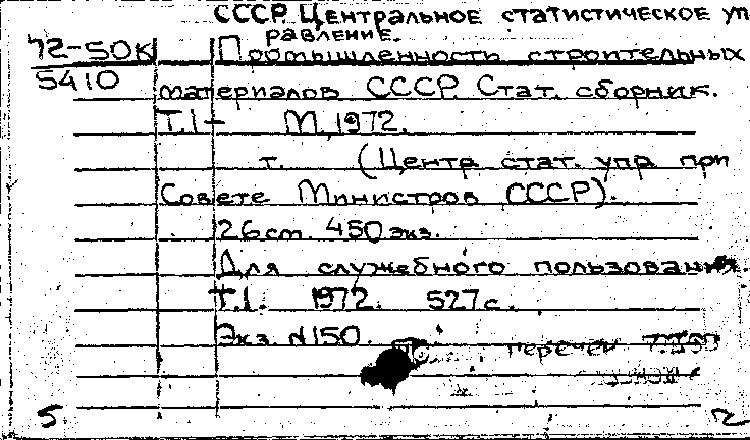 СССР. Центральное статистическое уп
равление.
72-50К Промышленность строительных
5410 материалов СССР. Стат. сборник.
Т.1- М, 1972.
т. (Центр стат. упр при
Совете Министров СССР).
26 см 450 экз.
Для служебного пользования.
Т.1. 1972. 527с.
Экз. N150.
перечен
5